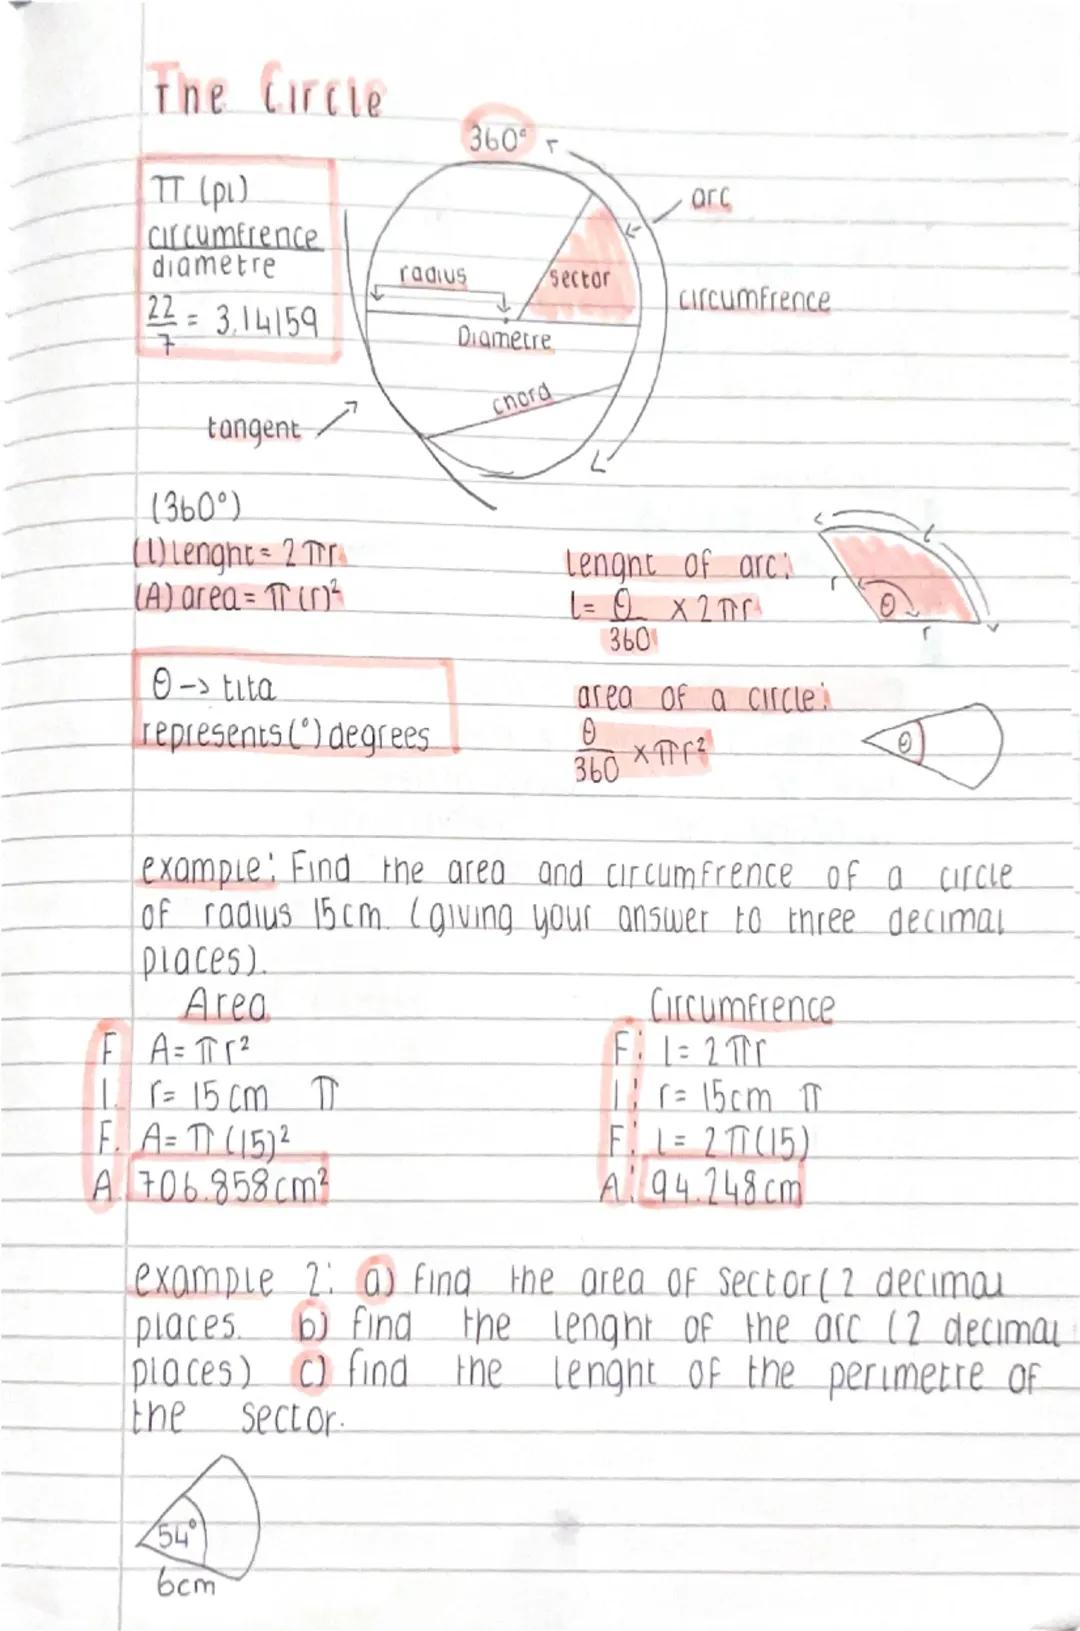 The Circle
360°
r
π (pi)
circumfrence
diametre
22/7 = 3.14159
arc
radius
sector
circumfrence
Diametre
chord
tangent
(360°)
(l) Lenght = 2πr
(A) area = π(r)²
Lenght of arc:
l = θ/360 × 2πr
l
r
θ
r
θ -> tita
represents (°) degrees
area of a circle:
θ/360 × πr²
θ
example: Find the area and circumfrence of a circle
of radius 15cm. (giving your answer to three decimal
places).
Area
F A = πr²
I. r = 15cm π
F. A = π(15)²
A. 706.858cm²
Circumfrence
F: l = 2πr
I: r = 15cm π
F: l = 2π(15)
A: 94.248cm
example 2: a) find the area of sector (2 decimal
places. b) find the lenght of the arc (2 decimal
places) c) find the lenght of the perimetre of
the sector.
54°
6cm